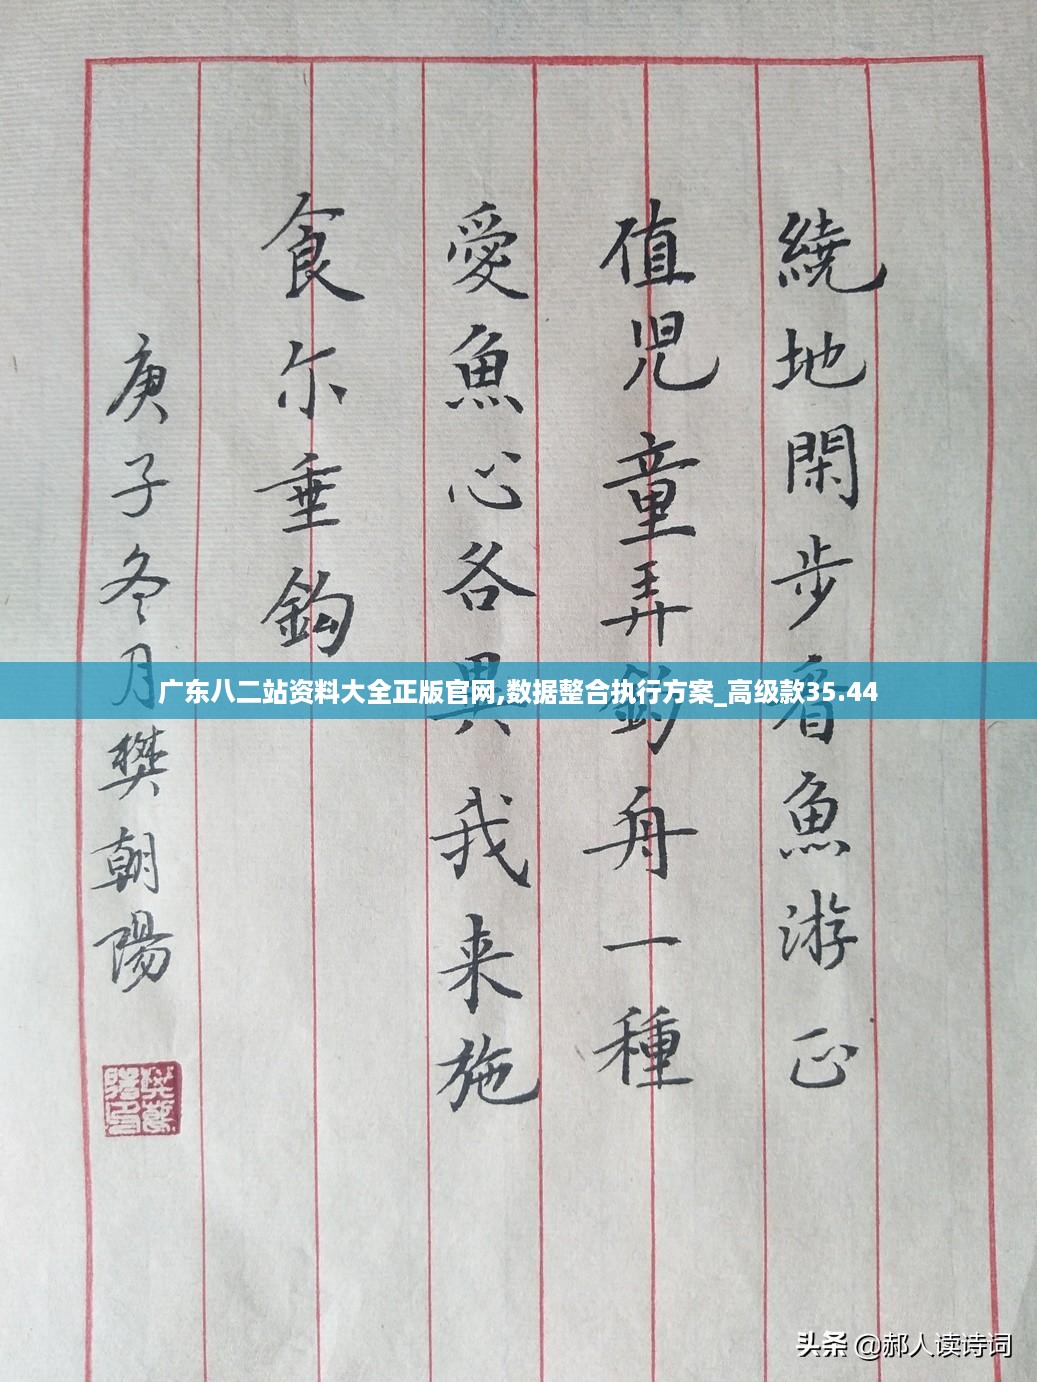 繞地閑步看魚游正
值児童弄釣舟一種
愛魚心各異我来施
食尔垂鈎
庚子冬月樊朝陽
广东八二站资料大全正版官网,数据整合执行方案_高级款35.44
头条 @郝人读诗词